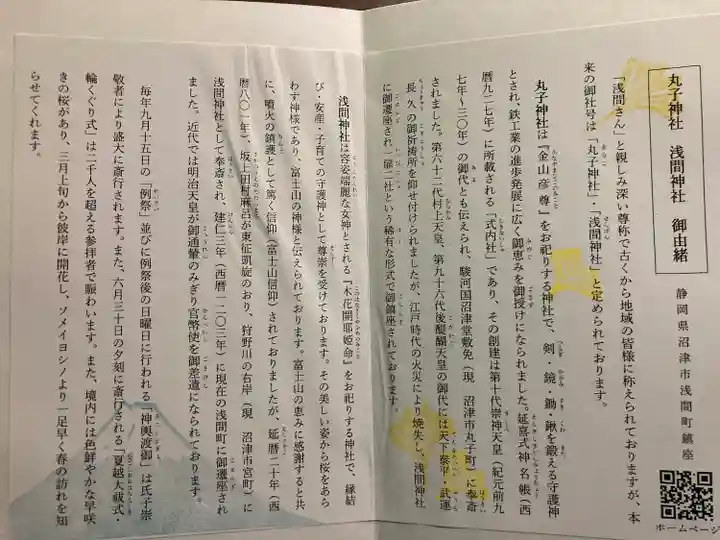 丸子神社 浅間神社 御由緒
静岡県沼津市浅間町鎮座
ホームページ
「浅間さん」と親しみ深い尊称で古くから地域の皆様に称えられておりますが、本
来の御社号は「丸子神社」・「浅間神社」と定められております。
丸子神社は『金山彦尊』をお祀りする神社で、剣・鏡・鋤・鍬を鍛える守護神
とされ、鉄工業の進歩発展に広く御恵みを御授けになられました。延喜式神名帳（西
暦九二七年）に所載される「式内社」であり、その創建は第十代崇神天皇（紀元前九
七年～三〇年）の御代とも伝えられ、駿河国沼津堂敷免（現 沼津市丸子町）に奉斎
されました。第六十二代村上天皇、第九十六代後醍醐天皇の御代には天下泰平・武運
長久の御祈祷所を仰せ付けられましたが、江戸時代の火災により焼失し、浅間神社
に御遷座され、一扉二社という稀有な形式で御鎮座されております。
浅間神社は容姿端麗な女神とされる『木花開耶姫命』をお祀りする神社で、縁結
び・安産・子育ての守護神として尊崇を受けております。その美しい姿から桜をあら
わす神様であり、富士山の神様と伝えられております。富士山の恵みに感謝すると共
に、噴火の鎮護として篤く信仰（富士山信仰）されておりましたが、延暦二十年（西
暦八〇一年）、坂上田村麻呂が東征凱旋のおり、狩野川の右岸（現 沼津市宮町）に
浅間神社として奉斎され、建仁三年（西暦一二〇三年）に現在の浅間町に御遷座され
ました。近代では明治天皇が御通輦のみぎり官幣使を御差遣になられております。
毎年九月十五日の「例祭」並びに例祭後の日曜日に行われる「神輿渡御」は氏子崇
敬者により盛大に斎行されます。また、六月三十日の夕刻に斎行される「夏越大祓式・
輪くぐり式」は二千人を超える参拝者で賑わいます。また、境内には色鮮やかな早咲
きの桜があり、三月上旬から彼岸に開花し、ソメイヨシノより一足早く春の訪れを知
らせてくれます。